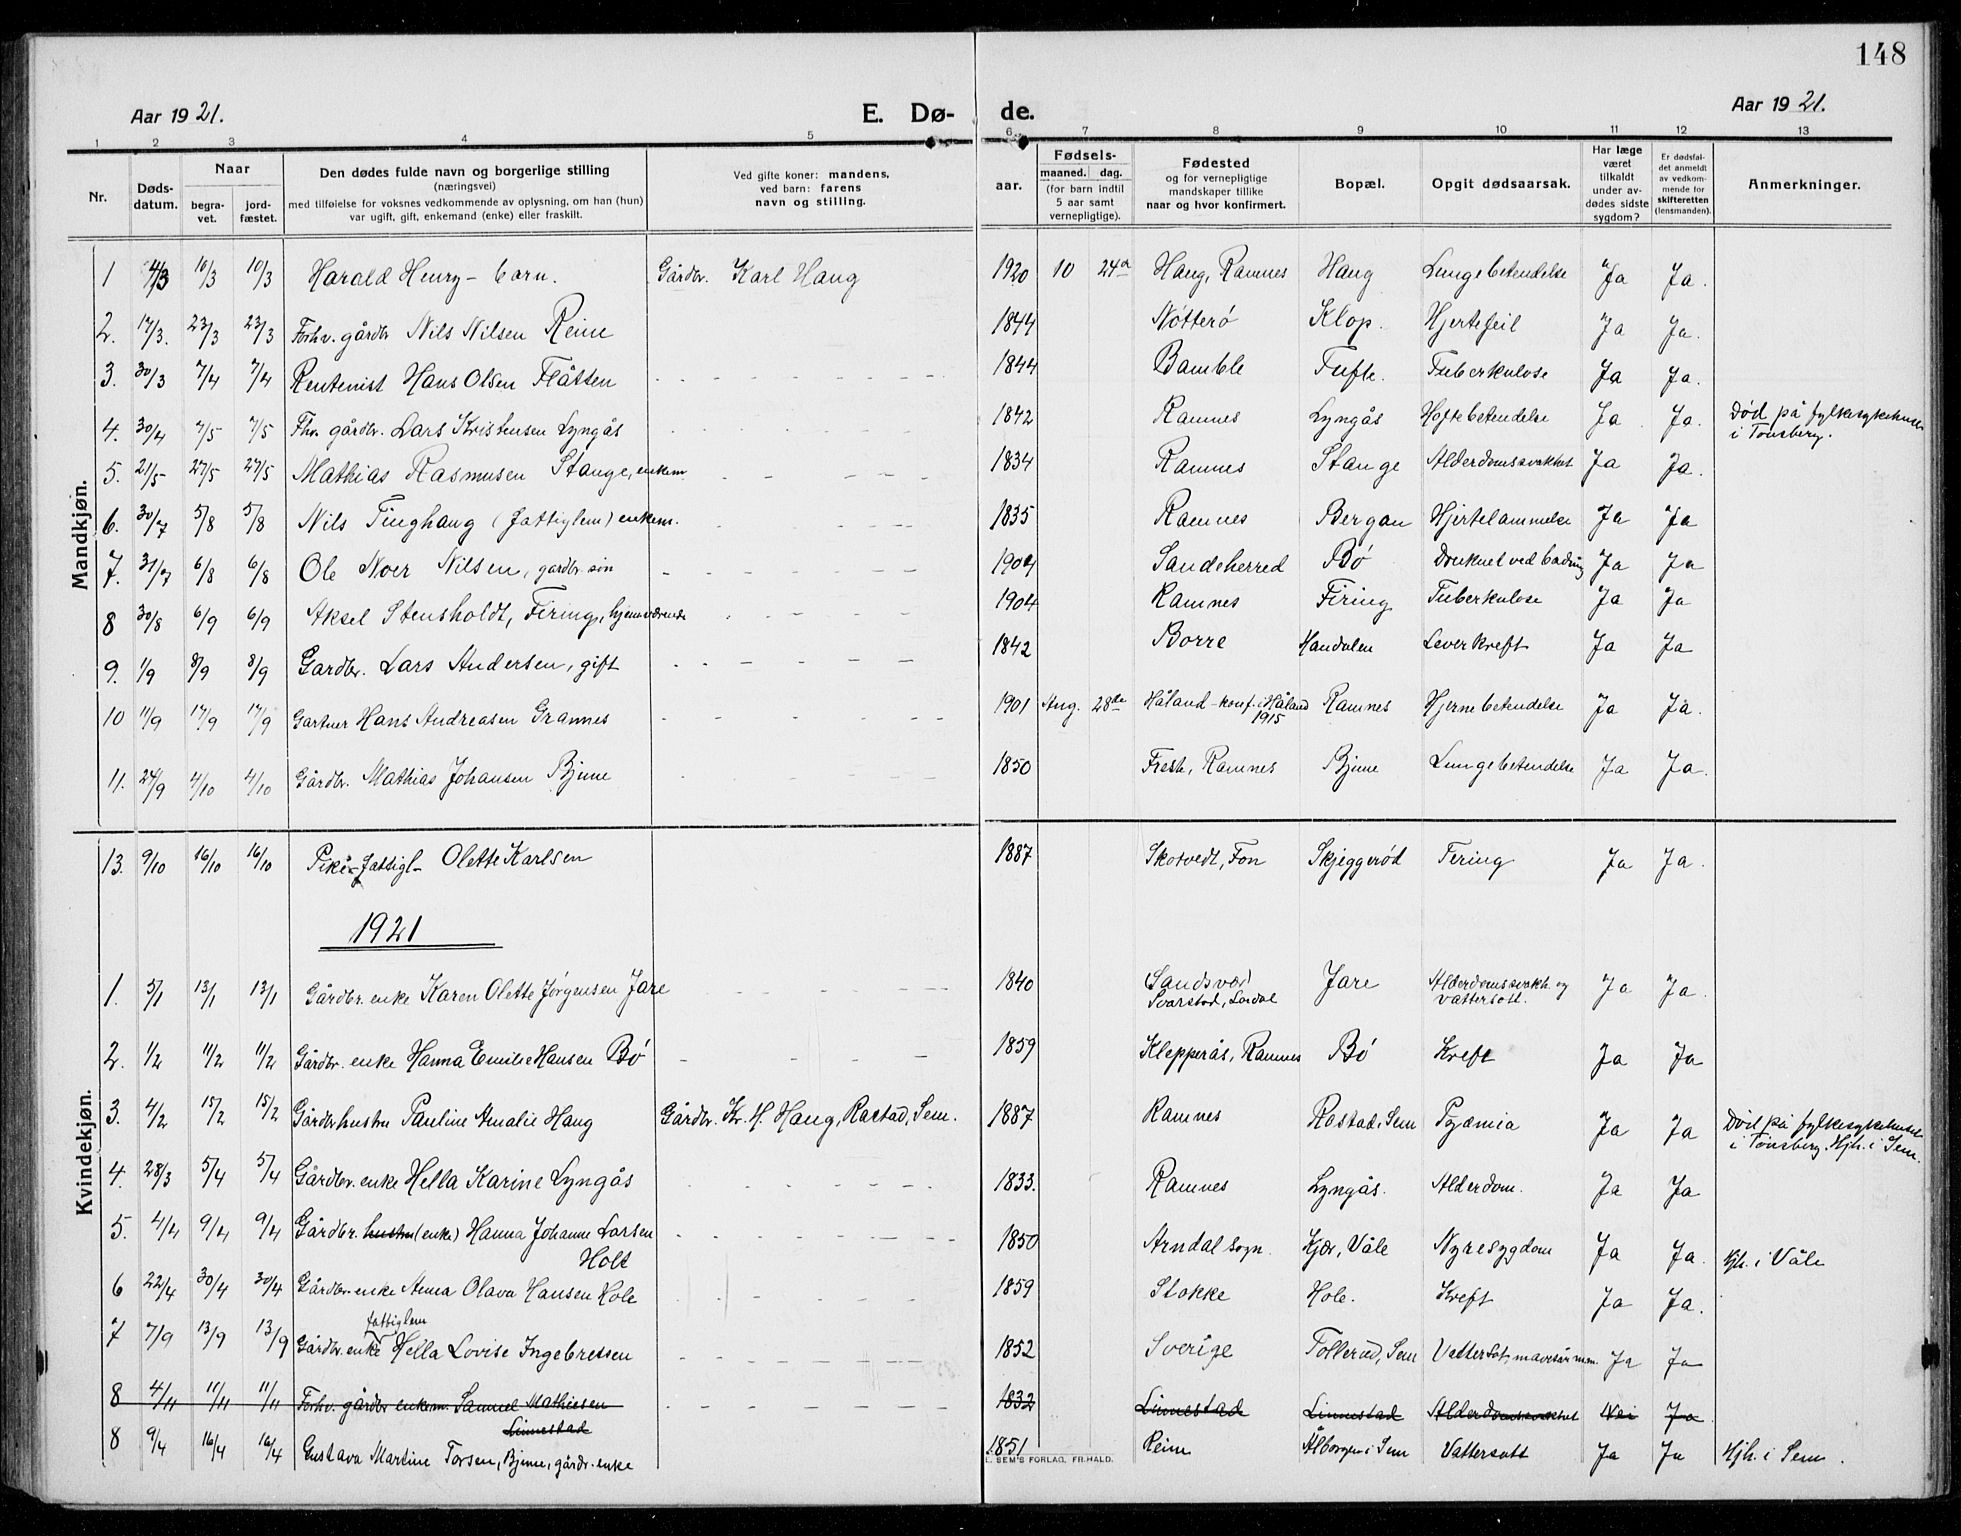 148
Aar 1921. E. Dø- de. Aar 1921.
1 2 3 4 5 6 7 8 9 10 11 12 13
Nr. Døds-datum. Naar begra-vet. jord-fæstet. Den dødes fulde navn og borgerlige stilling (næringsvei) med tilføielse for voksnes vedkommende av oplysning, om han (hun) var ugift, gift, enkemand (enke) eller fraskilt. Ved gifte koner: mandens, ved barn: farens navn og stilling. Fødsels- aar. maaned. dag. (for barn indtil 5 aar samt vernepligtige). Fødested og for vernepligtige mandskaper tillike naar og hvor konfirmert. Bopæl. Opgit dødsaarsak. Har læge været tilkaldt under av-dødes sidste sygdom? Er dødsfal-det anmeldt av vedkom-mende for skifteretten (lensmanden). Anmerkninger.
Mandkjøn.
1 4/3 10/3 10/3 Harald Henry – barn. Gårdbr. Karl Haug 1920 10 24de Haug, Ramnes Haug Lungebetendelse Ja Ja.
2. 17/3. 23/3 23/3 Forhv. gårdbr Nils Nilsen Reine 1844 Nøtterø Klop. Hjertefeil Ja Ja.
3. 30/3 7/4 7/4 Rentenist Hans Olsen Flåtten 1844 Bamble Tufte. Tuberkulose Ja Ja.
4. 30/4 7/5 7/5 Fhv. gårdbr. Lars Kristensen Lyngås 1842 Ramnes Lyngås Hoftebetendelse Ja Ja. Død på fylkesykehuset i Tønsberg.
5. 21/5 27/5 27/5 Mathias Rasmusen Stange, enkem. 1834 Ramnes Stange Alderdomssvakhet Ja Ja.
6. 30/7 5/8 5/8 Nils Tinghaug (fattiglem) enkem. 1835 Ramnes Bergan Hjertelammelse Ja Ja
7. 31/7 6/8 6/8 Ole Noer Nilsen, gardbr. søn 1904 Sandeherred Bø Druknet ved bading Ja Ja
8 30/8 6/9 6/9 Aksel Stensholdt, Firing, hjemmeværende 1904 Ramnes Firing Tuberkulose Ja Ja
9. 1/9 8/9 8/9 Gardbr. Lars Andersen, gift 1842 Borre Handalen Leverkreft Ja Ja
10 11/9 17/9 17/9 Gartner Hans Andreasen Grannes 1901 Aug. 28de Håland – konf. i Håland 1915 Ramnes Hjernebetendelse Ja Ja.
11. 27/9 4/10 4/10 Gårdbr. Mathias Johansen Bjune 1850 Freste, Ramnes Bjune Lungebetendelse Ja Ja.
Kvindekjøn.
13. 9/10 16/10 16/10 Pike – fattigl – Olette Karlsen 1887 Skotvedt, Fon Skjeggerød Tering Ja Ja.
1921
1. 5/1 13/1 13/1 Gårdbr. enke Karen Olette Jørgensen Jare 1840 Sandsvær Svarstad, Lardal Jare Alderdomssvakh. og vattersott. Ja Ja.
2. 1/2 11/2 11/2 Gårdbr. enke Hanna Emilie Hansen Bø 1859 Klepperås, Ramnes Bø Kreft Ja Ja
3. 4/2 15/2 15/2 Gårdbr hustru Pauline Amalie Haug Gårdbr. Kr. H. Haug, Rastad, Sem. 1887 Ramnes Rastad, Sem Pyæmia Ja Ja Død på fylkesykehuset i Tønsberg. Hjh. i Sem.
4. 28/3 5/4 5/4 Gårdbr. enke Hella Karine Lyngås 1833. Ramnes Lyngås. Alderdom. Ja Ja
5. 4/4 9/4 9/4 Gårdbr. hustru (enke) Hanna Johanne Larsen Holt 1850 Arndal sogn. Kjær, Våle Nyresygdom Ja Ja. Hjh. i Våle
6 22/4 30/4 30/4 Gårdbr. enke Anna Olava Hansen Hole 1859 Stokke Hole. Kreft Ja Ja.
7 7/9 13/9 13/9 Gårdbr. enke fattiglem Hella Lovise Ingebretsen 1852 Sverige Tollerud, Sem Vattersot, mavesår m.m. Ja Ja
8 4/11 11/11 11/11 Forhv. gårdbr enkem. Samuel Mathiesen Linnestad 1832 Linnestad Linnestad Alderdomssvakhet Nei Ja
8 9/4 16/4 16/4 Gustava Martine Torsen, Bjune, gårdbr. enke 1851 Reine Ålborgen i Sem Vattersott Ja Ja Hjh. i Sem.
L. SEM'S FORLAG, FR.HALD.